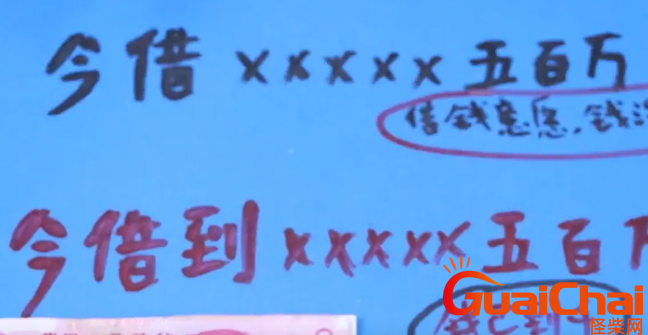 今借 xxxxx 五百万
借钱意愿，钱
今借到 xxxxx 五百
GuaiChai
怪柴网